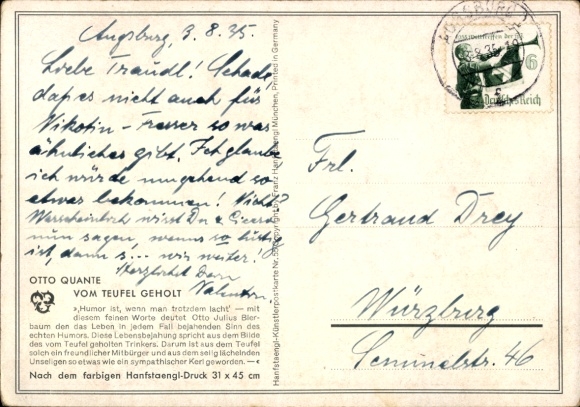 Augsburg, 3.8.35.
Liebe Traudl! Schade,
daß es nicht auch für
Nikotin-Fresser so was
ähnliches gibt. Ich glaube
ich würde umgehend so
etwas bekommen! Nicht?
Warscheinlich wirst Du
nun sagen, wenns so lustig
ist, dann s... wir weiter!
Herzlichst Dein
Valentin.
OTTO QUANTE
VOM TEUFEL GEHOLT
»‚Humor ist, wenn man trotzdem lacht' — mit
diesem feinen Worte deutet Otto Julius Bier-
baum den das Leben in jedem Fall bejahenden Sinn des
echten Humors. Diese Lebensbejahung spricht aus dem Bilde
des vom Teufel geholten Trinkers. Darum ist aus dem Teufel
solch ein freundlicher Mitbürger und aus dem selig lächelnden
Unseligen so etwas wie ein sympathischer Kerl geworden. —«
Nach dem farbigen Hanfstaengl-Druck 31 x 45 cm
Hanfstaengl-Künstlerpostkarte Nr. Copyright by Franz Hanfstaengl München, Printed in Germany
AUGSBURG
6
Deutsches Reich
Frl.
Gertraud Drey
Würzburg
Seminarstr. 46